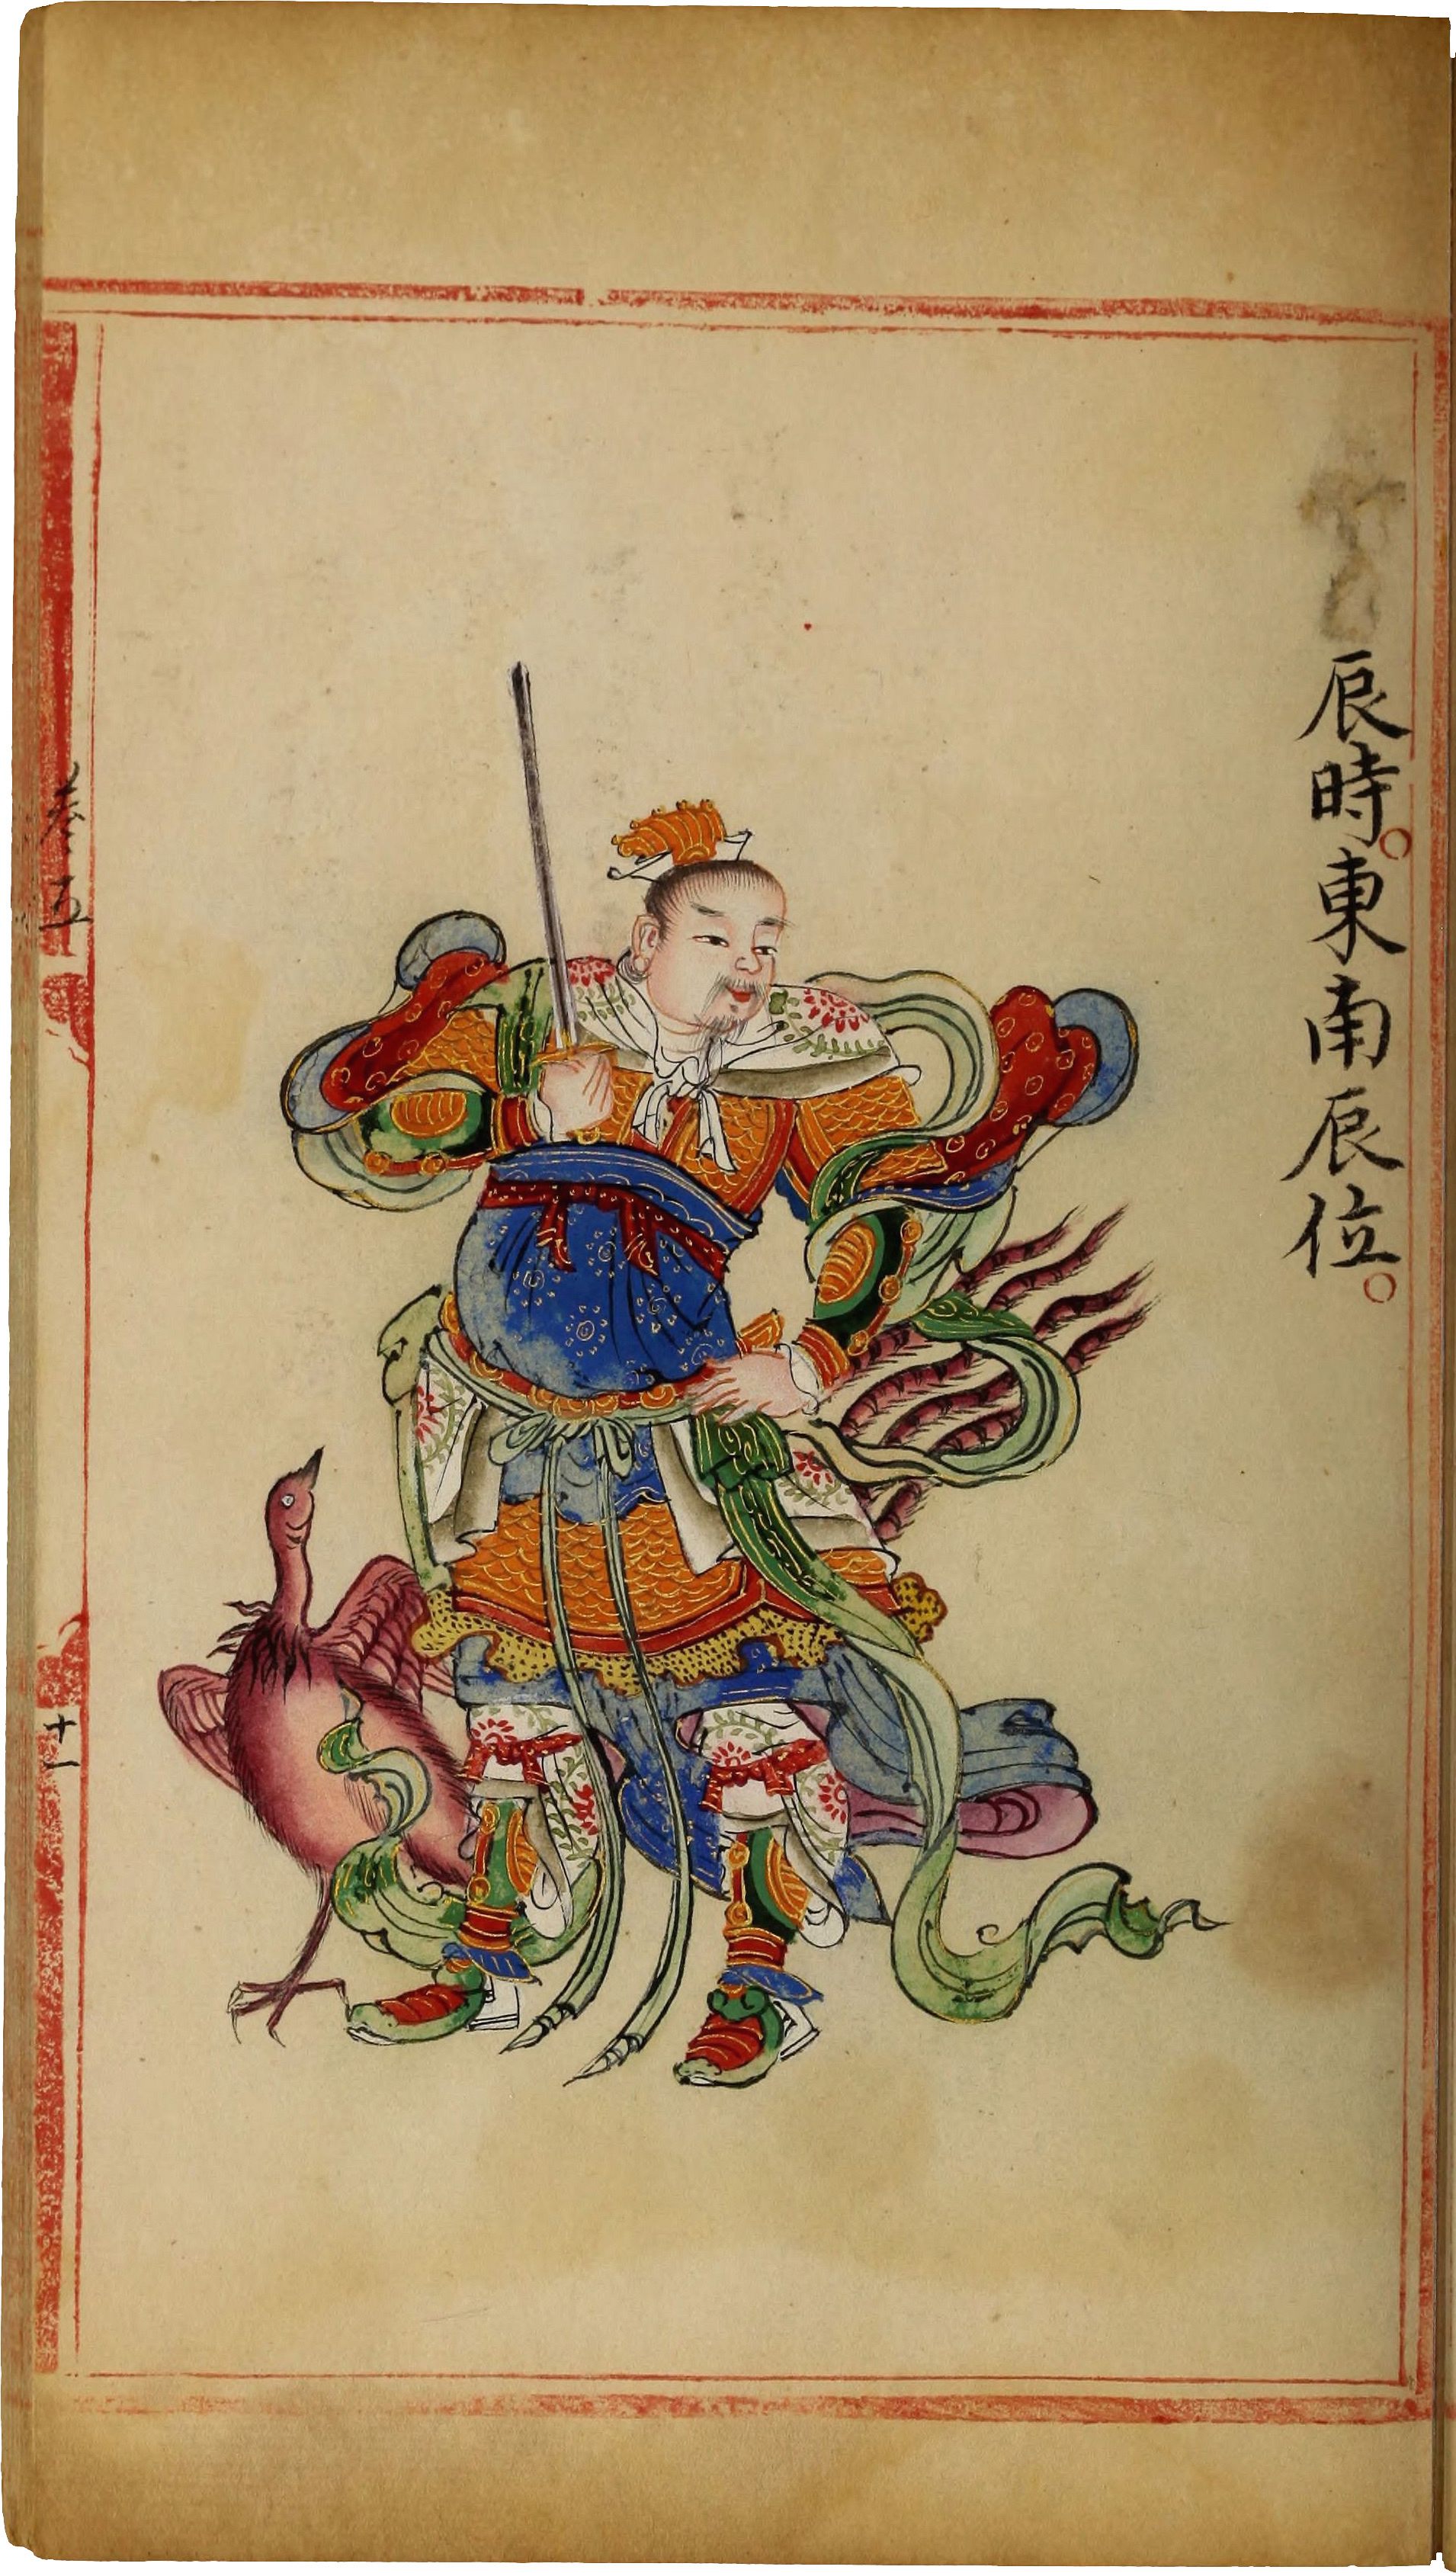 辰時。東南辰位。
卷五
十一